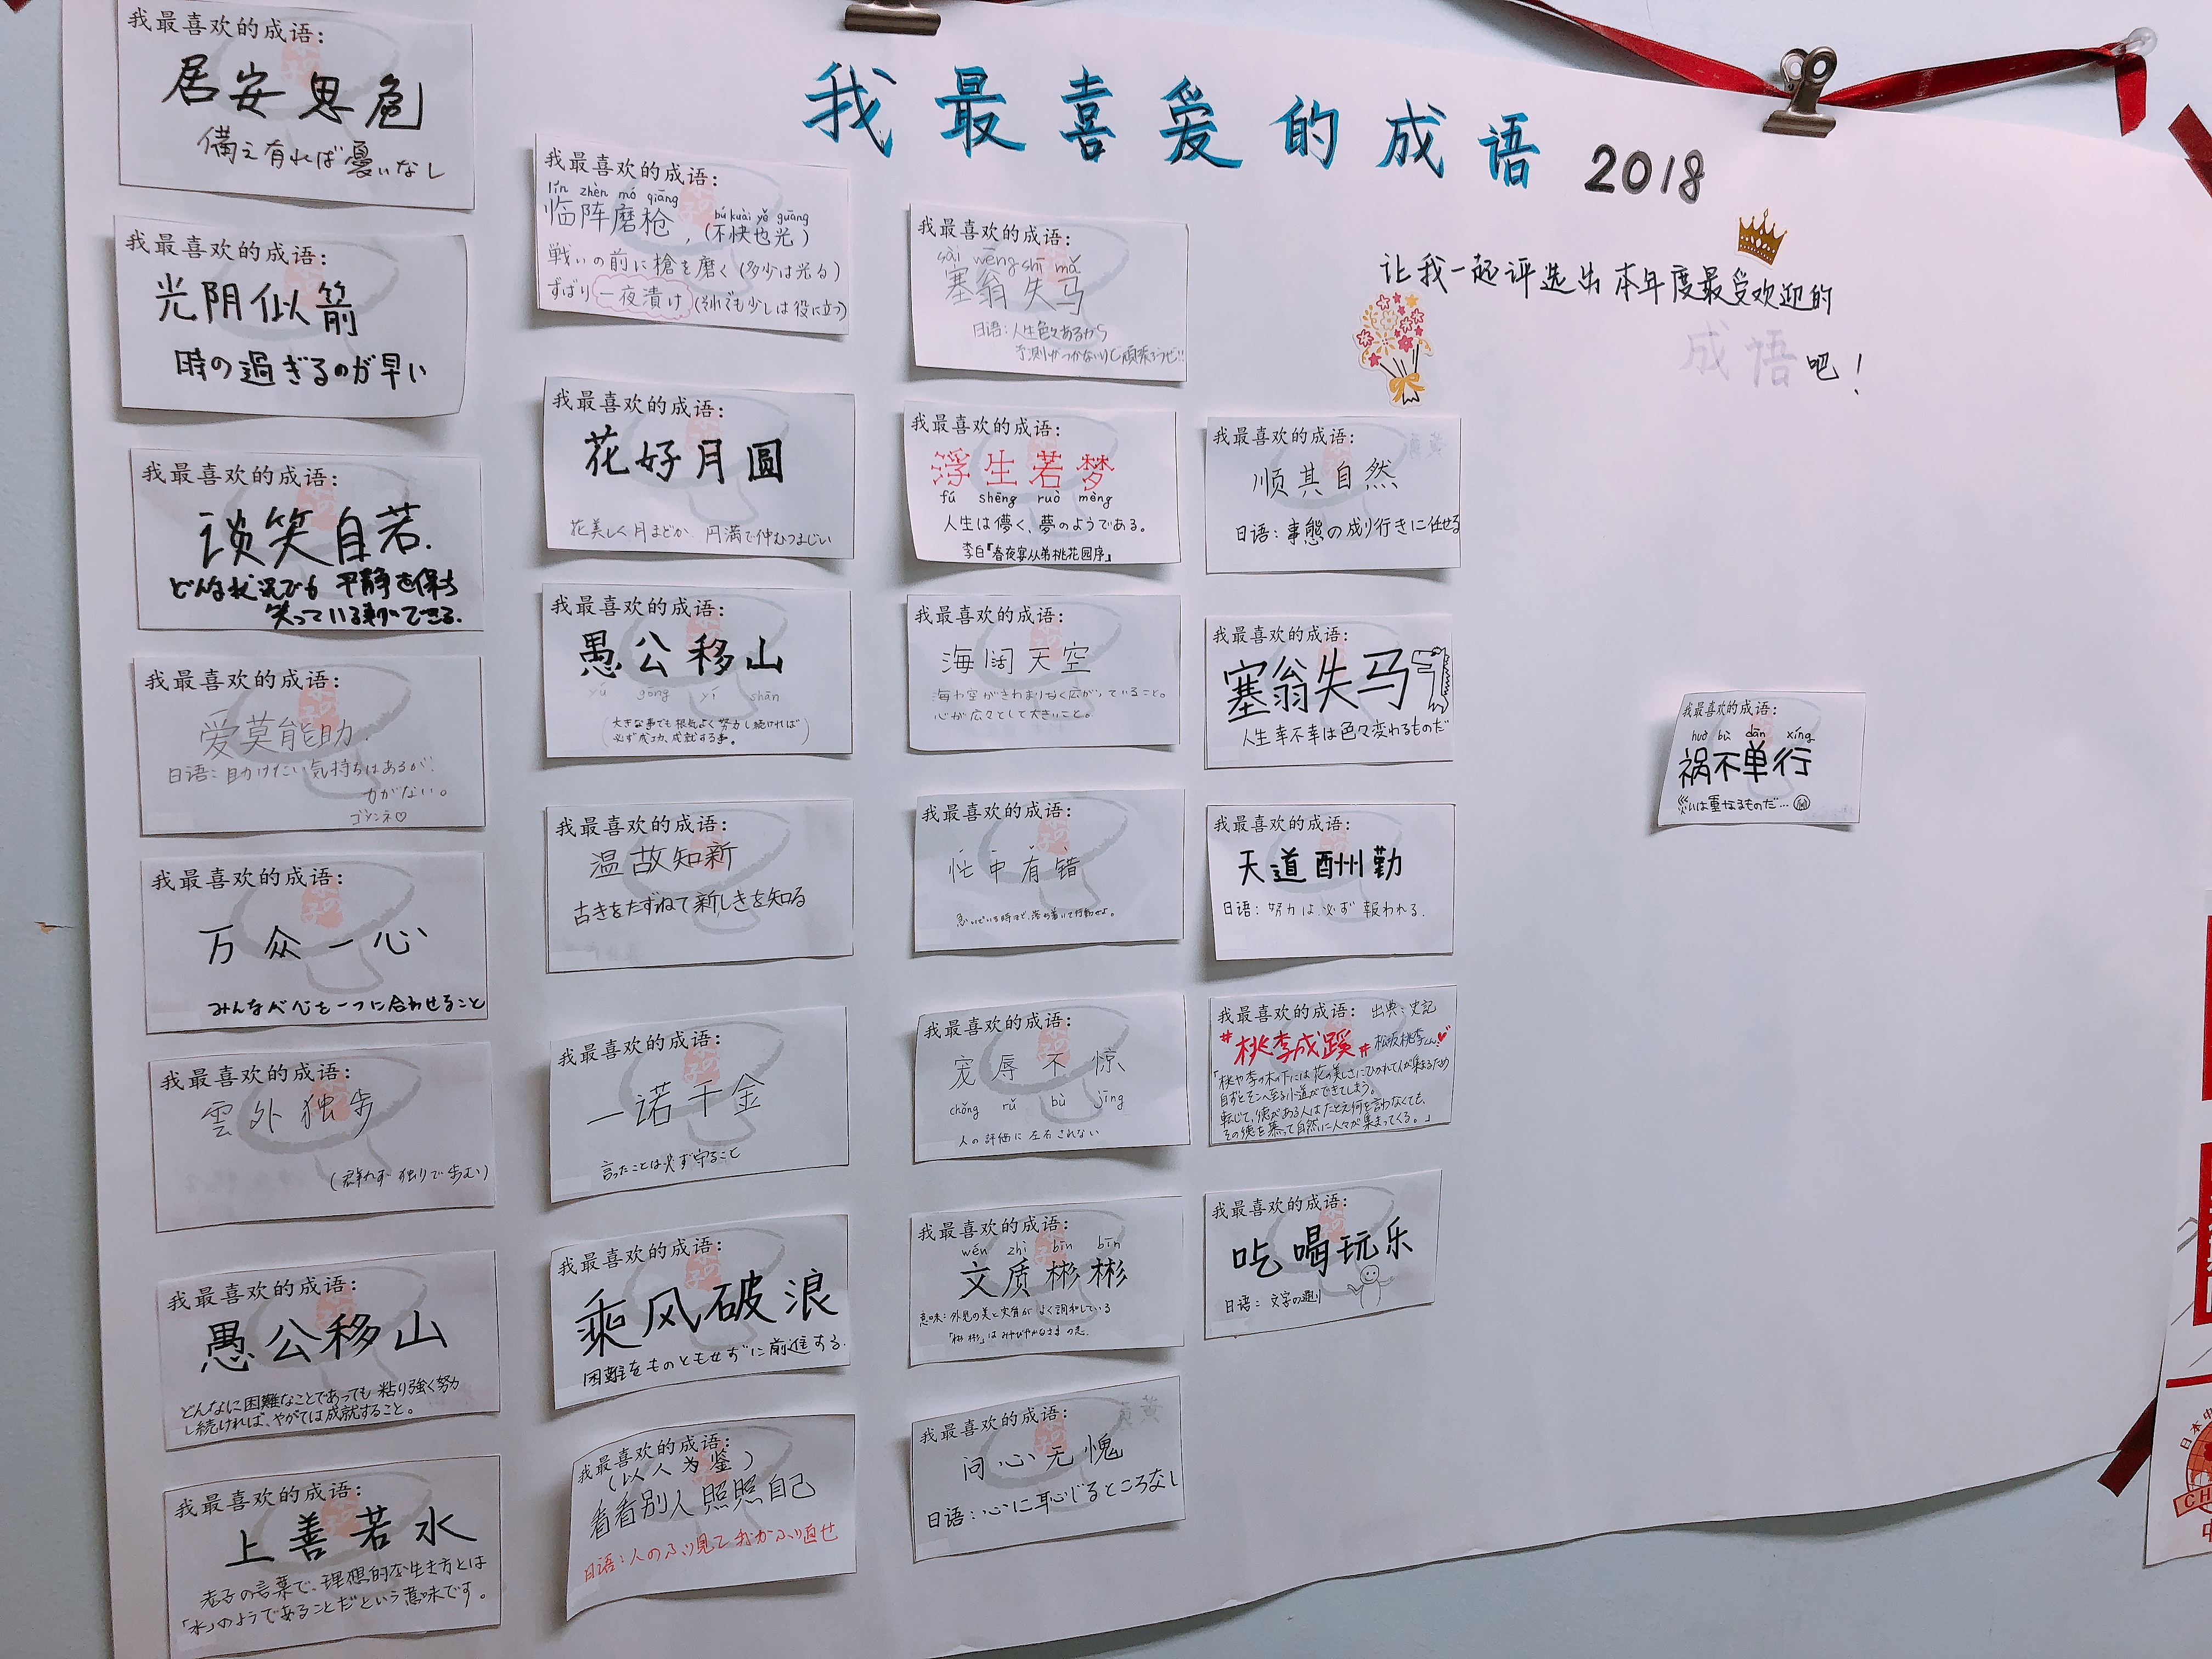 我最喜爱的成语 2018
让我一起评选出本年度最受欢迎的
成语吧！
我最喜欢的成语：
居安思危
備え有れば憂いなし
我最喜欢的成语：
光阴似箭
時の過ぎるのが早い
我最喜欢的成语：
谈笑自若.
どんな状況でも 平静を保ち
笑っている事ができる.
我最喜欢的成语：
爱莫能助.
日语：助けたい気持ちはあるが.
力がない。
ゴメンネ♡
我最喜欢的成语：
万众一心
みんなで心を一つに合わせること
我最喜欢的成语：
雲外独歩
(群れず 独りで歩む)
我最喜欢的成语：
愚公移山
どんなに困難なことであっても 粘り強く努力
し続ければ、やがては成就すること。
我最喜欢的成语：
上善若水
老子の言葉で、理想的な生き方とは
「水」のようであることだという意味です。
我最喜欢的成语：
lín zhèn mó qiāng
临阵磨枪，(不快也光)
bú kuài yě guāng
戦いの前に槍を磨く(多少は光る)
ずばり 一夜漬け (それでも少しは役に立つ)
我最喜欢的成语：
花好月圆
花美しく月まどか 円満で仲むつまじい
我最喜欢的成语：
愚公移山
yú gōng yí shān
(大きな事でも根気よく努力し続ければ
必ず成功、成就する事。)
我最喜欢的成语：
温故知新
古きをたずねて新しきを知る
我最喜欢的成语：
一诺千金
言ったことは必ず守ること
我最喜欢的成语：
乘风破浪
困難をものともせずに前進する.
我最喜欢的成语：
(以人为鉴)
看看别人照照自己
日语：人のふり見て我がふり直せ
我最喜欢的成语：
sài wēng shī mǎ
塞翁失马
日语：人生色々あるから
予測がつかないけど頑張ろうぜ!!
我最喜欢的成语：
浮生若梦
fú shēng ruò mèng
人生は儚く、夢のようである。
李白『春夜宴从弟桃花园序』
我最喜欢的成语：
海阔天空
海や空がきわまりなく広がっていること。
心が広々として大きいこと。
我最喜欢的成语：
忙中有错
急いでいる時ほど、落ち着いて行動せよ。
我最喜欢的成语：
宠辱不惊
chǒng rǔ bù jīng
人の評価に左右されない
我最喜欢的成语：
wén zhì bīn bīn
文质彬彬
意味：外見の美と実質がよく調和している
「彬彬」は みやびやかなさま
我最喜欢的成语：
问心无愧
日语：心に恥じるところなし
我最喜欢的成语：
顺其自然
日语：事態の成り行きに任せる
我最喜欢的成语：
塞翁失马
人生幸不幸は色々変わるものだ
我最喜欢的成语：
天道酬勤
日语：努力は必ず報われる.
我最喜欢的成语： 出典：史記
"桃李成蹊" 松坂桃李くん♥
「桃や李の木の下には花の美しさにひかれて人が集まるため
自ずとそこへ至る小道ができてしまう。
転じて、徳がある人はたとえ何を言わなくても、
その徳を慕って自然に人々が集まってくる。」
我最喜欢的成语：
吃喝玩乐
日语：文字の通り
我最喜欢的成语：
huò bù dān xíng
祸不单行
災いは重なるものだ…